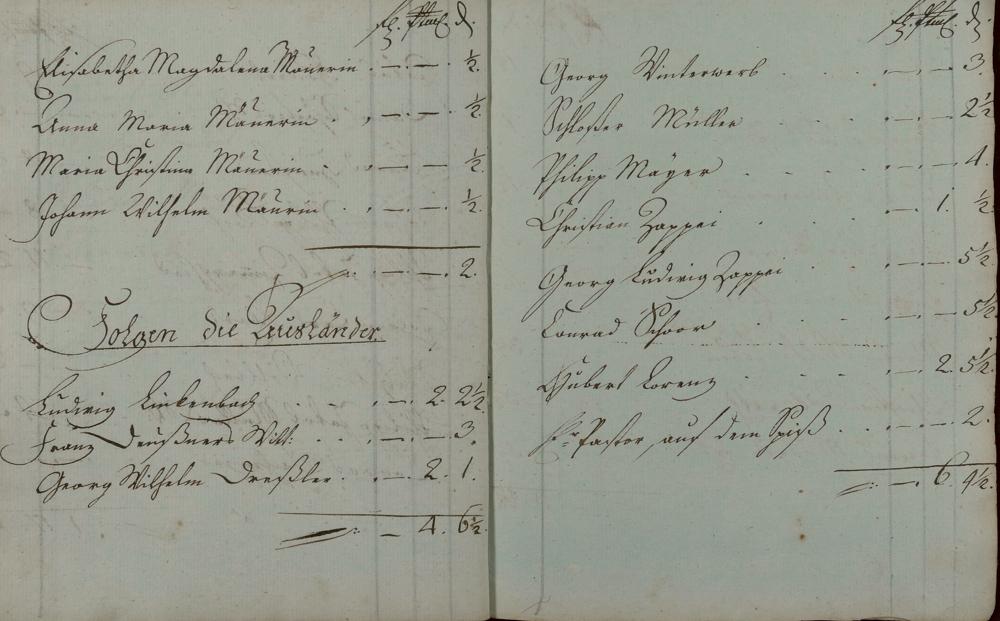 fl. d.
Elisabetha Magdalena Mäuerin . — . — . ½.
Anna Maria Mäuerin . , — . — . ½.
Maria Christina Mäuerin . , — . — ½.
Johann Wilhelm Mäurin . , — . — ½.
— . — . 2.
Folgen die Ausländer.
Ludwig Linkenbach . . . , — . 2. 2½
Franz Deußners Witt: . . , — . — . 3.
Georg Wilhelm Dreßler . , — . 2. 1.
— 4. 6½.
fl. d.
Georg Winterwerb . . . , — . — 3.
Schloßer Müller . . . , — . — 2½
Philipp Mäyer . . . , — . — 4.
Christian Zappei . . , — . 1. ½.
Georg Ludwig Zappei . . , — . — 5½.
Conrad Schoor . . . , — . — 5½
Hubert Lorenz . . . , — . 2. 5½.
Pastor auf dem Spieß . . — . — . 2.
— . 6. 4½.